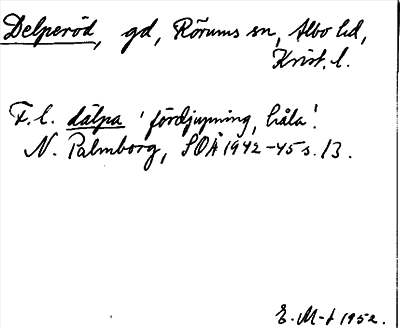 Delperöd, gd, Rörums sn, Albo hd,
Krist. l.
F. l. dälpa 'fördjupning, håla'.
N. Palmborg, SOÅ 1942-45 s. 13.
E. M-t 1952.